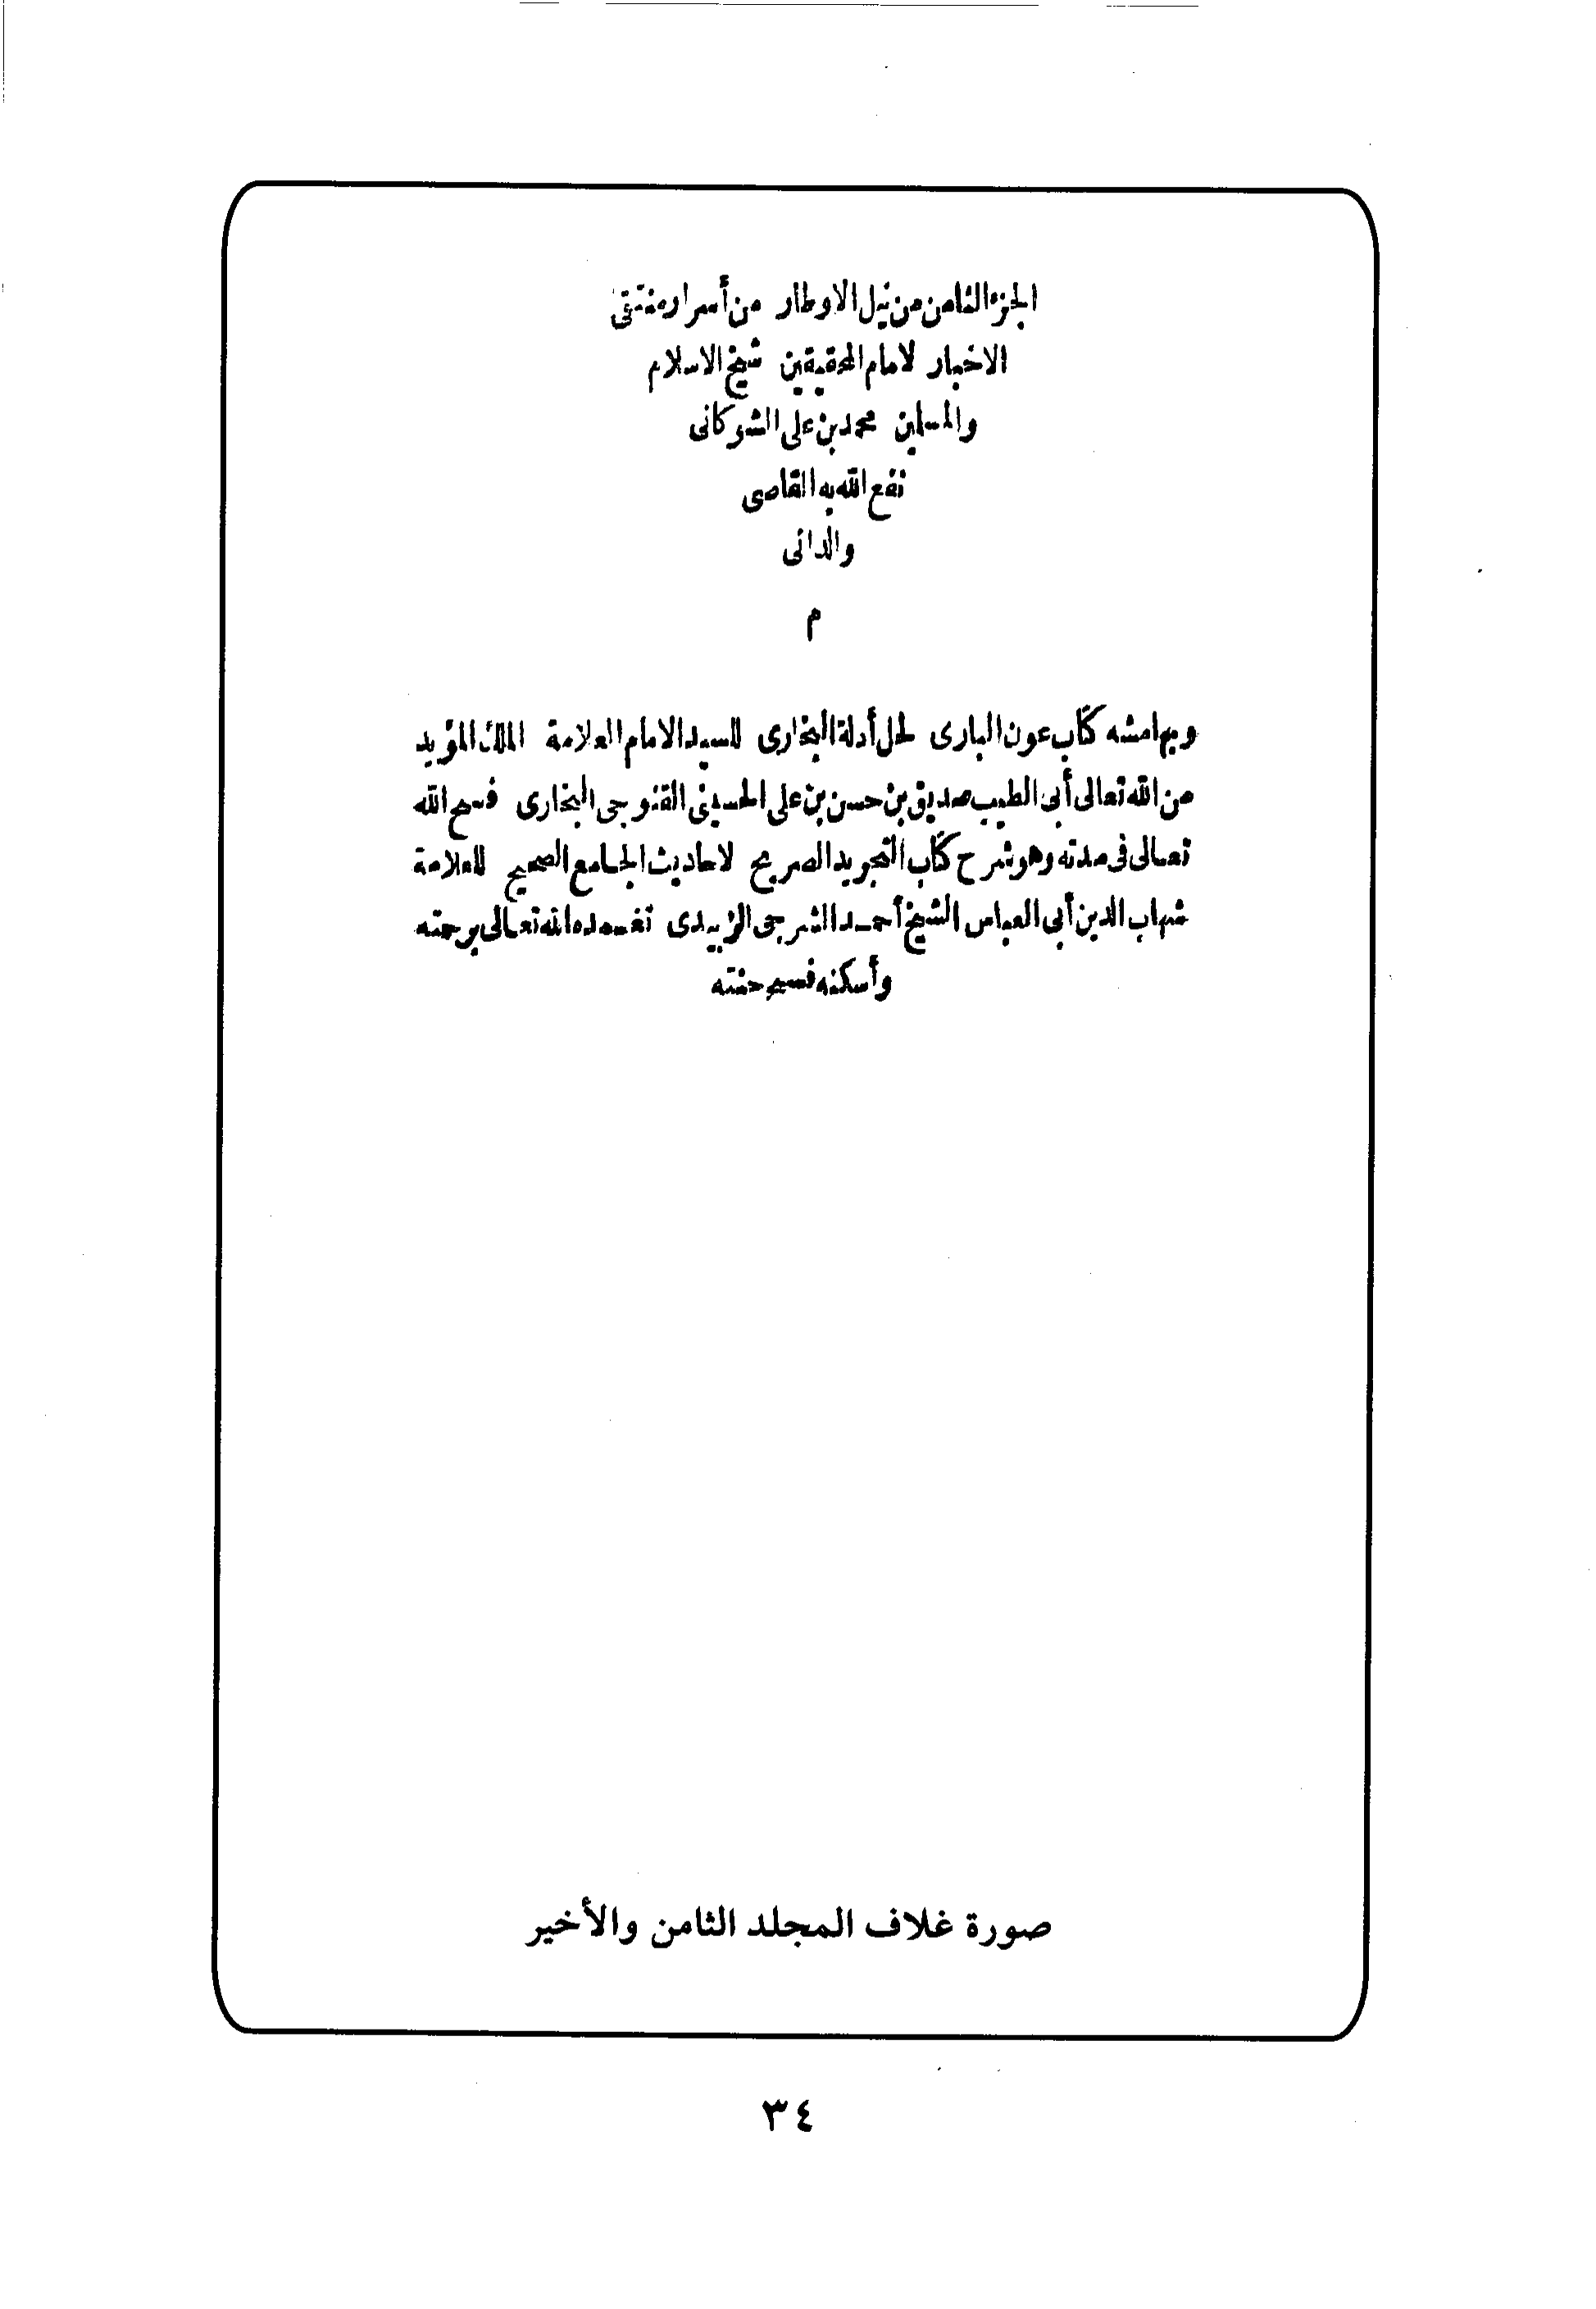 الجزء الثامن من نيل الاوطار من أسرار منتقى
الاخبار لامام المحققين شيخ الاسلام
والمسلمين محمد بن على الشوكانى
نفع الله به القاصى
والدانى
م
وبهامشه كتاب عون البارى لحل أدلة البخارى للسيد الامام العلامة الملك المؤيد
من الله تعالى أبى الطيب صديق بن حسن بن على الحسينى القنوجى البخارى فسح الله
تعالى فى مدته وهو شرح كتاب التجريد الصريح لاحاديث الجامع الصحيح للعلامة
شهاب الدين أبى العباس الشيخ أحمد الشرجى الزبيدى تغمده الله تعالى برحمته
وأسكنه فسيح جنته
صورة غلاف المجلد الثامن والأخير
٣٤